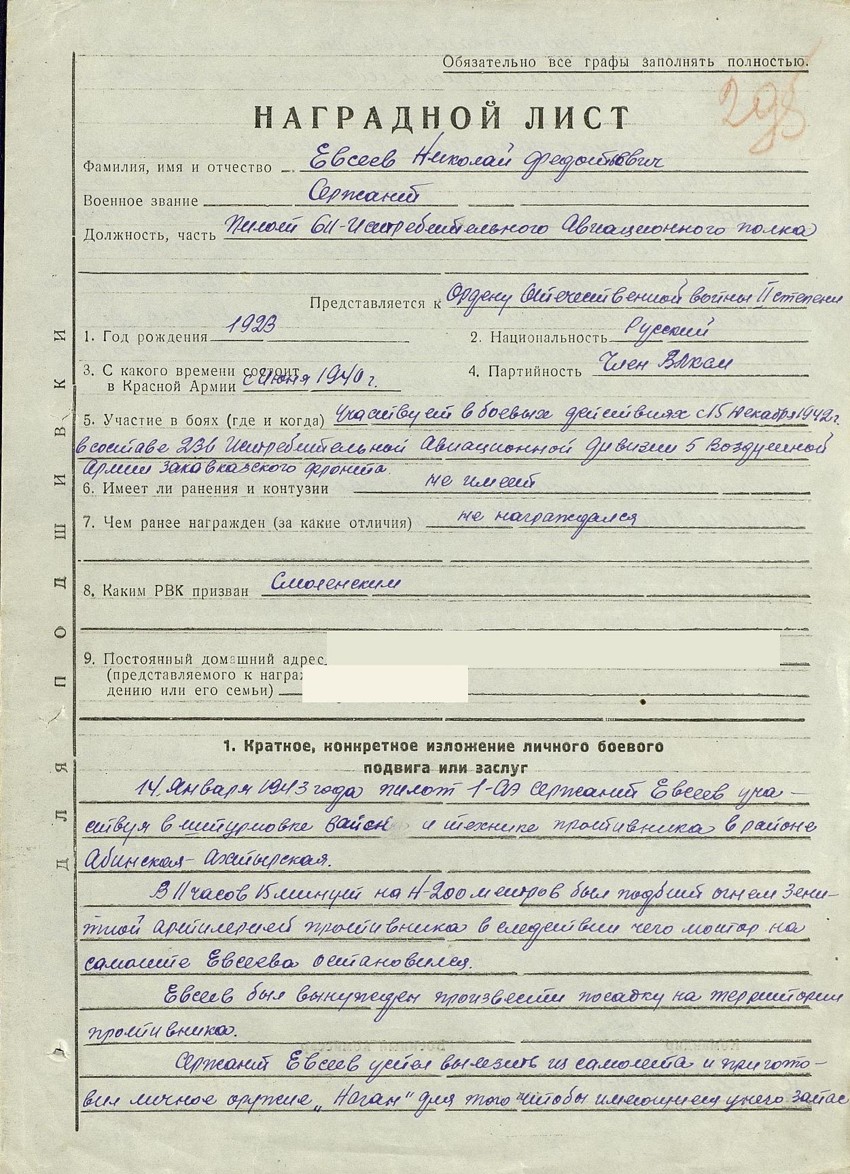 Обязательно все графы заполнять полностью.
НАГРАДНОЙ ЛИСТ
Фамилия, имя и отчество Евсеев Николай
Военное звание Сержант
Должность, часть Пилот 611-Истребительного Авиационного полка
Представляется к Ордену Отечественной войны II степени
1. Год рождения 1923 2. Национальность Русский
3. С какого времени состоит
в Красной Армии с Июня 1940 г. 4. Партийность Член ВЛКСМ
5. Участие в боях (где и когда) Участвует в боевых действиях с 15 декабря 1942 г.
в составе 236 Истребительной Авиационной дивизии 5 Воздушной
Армии Закавказского фронта.
6. Имеет ли ранения и контузии не имеет
7. Чем ранее награжден (за какие отличия) не награждался
8. Каким РВК призван Смоленским
9. Постоянный домашний адрес
(представляемого к награ
дению или его семьи)
1. Краткое, конкретное изложение личного боевого
подвига или заслуг
14 Января 1943 года пилот 1-АЭ сержант Евсеев уча-
ствуя в штурмовке войск и технике противника в районе
Абинская-Ахтырская.
В 11 часов 15 минут на Н-200 метров был подбит огнем зени-
тной артилерией противника в следствии чего мотор на
самолете Евсеева остановился.
Евсеев был вынужден произвести посадку на территории
противника.
Сержант Евсеев успел вылезить из самолета и пригото-
вил личное оружие „Наган" для того чтобы имеющиеся у него запас
ДЛЯ ПОДШИВКИ